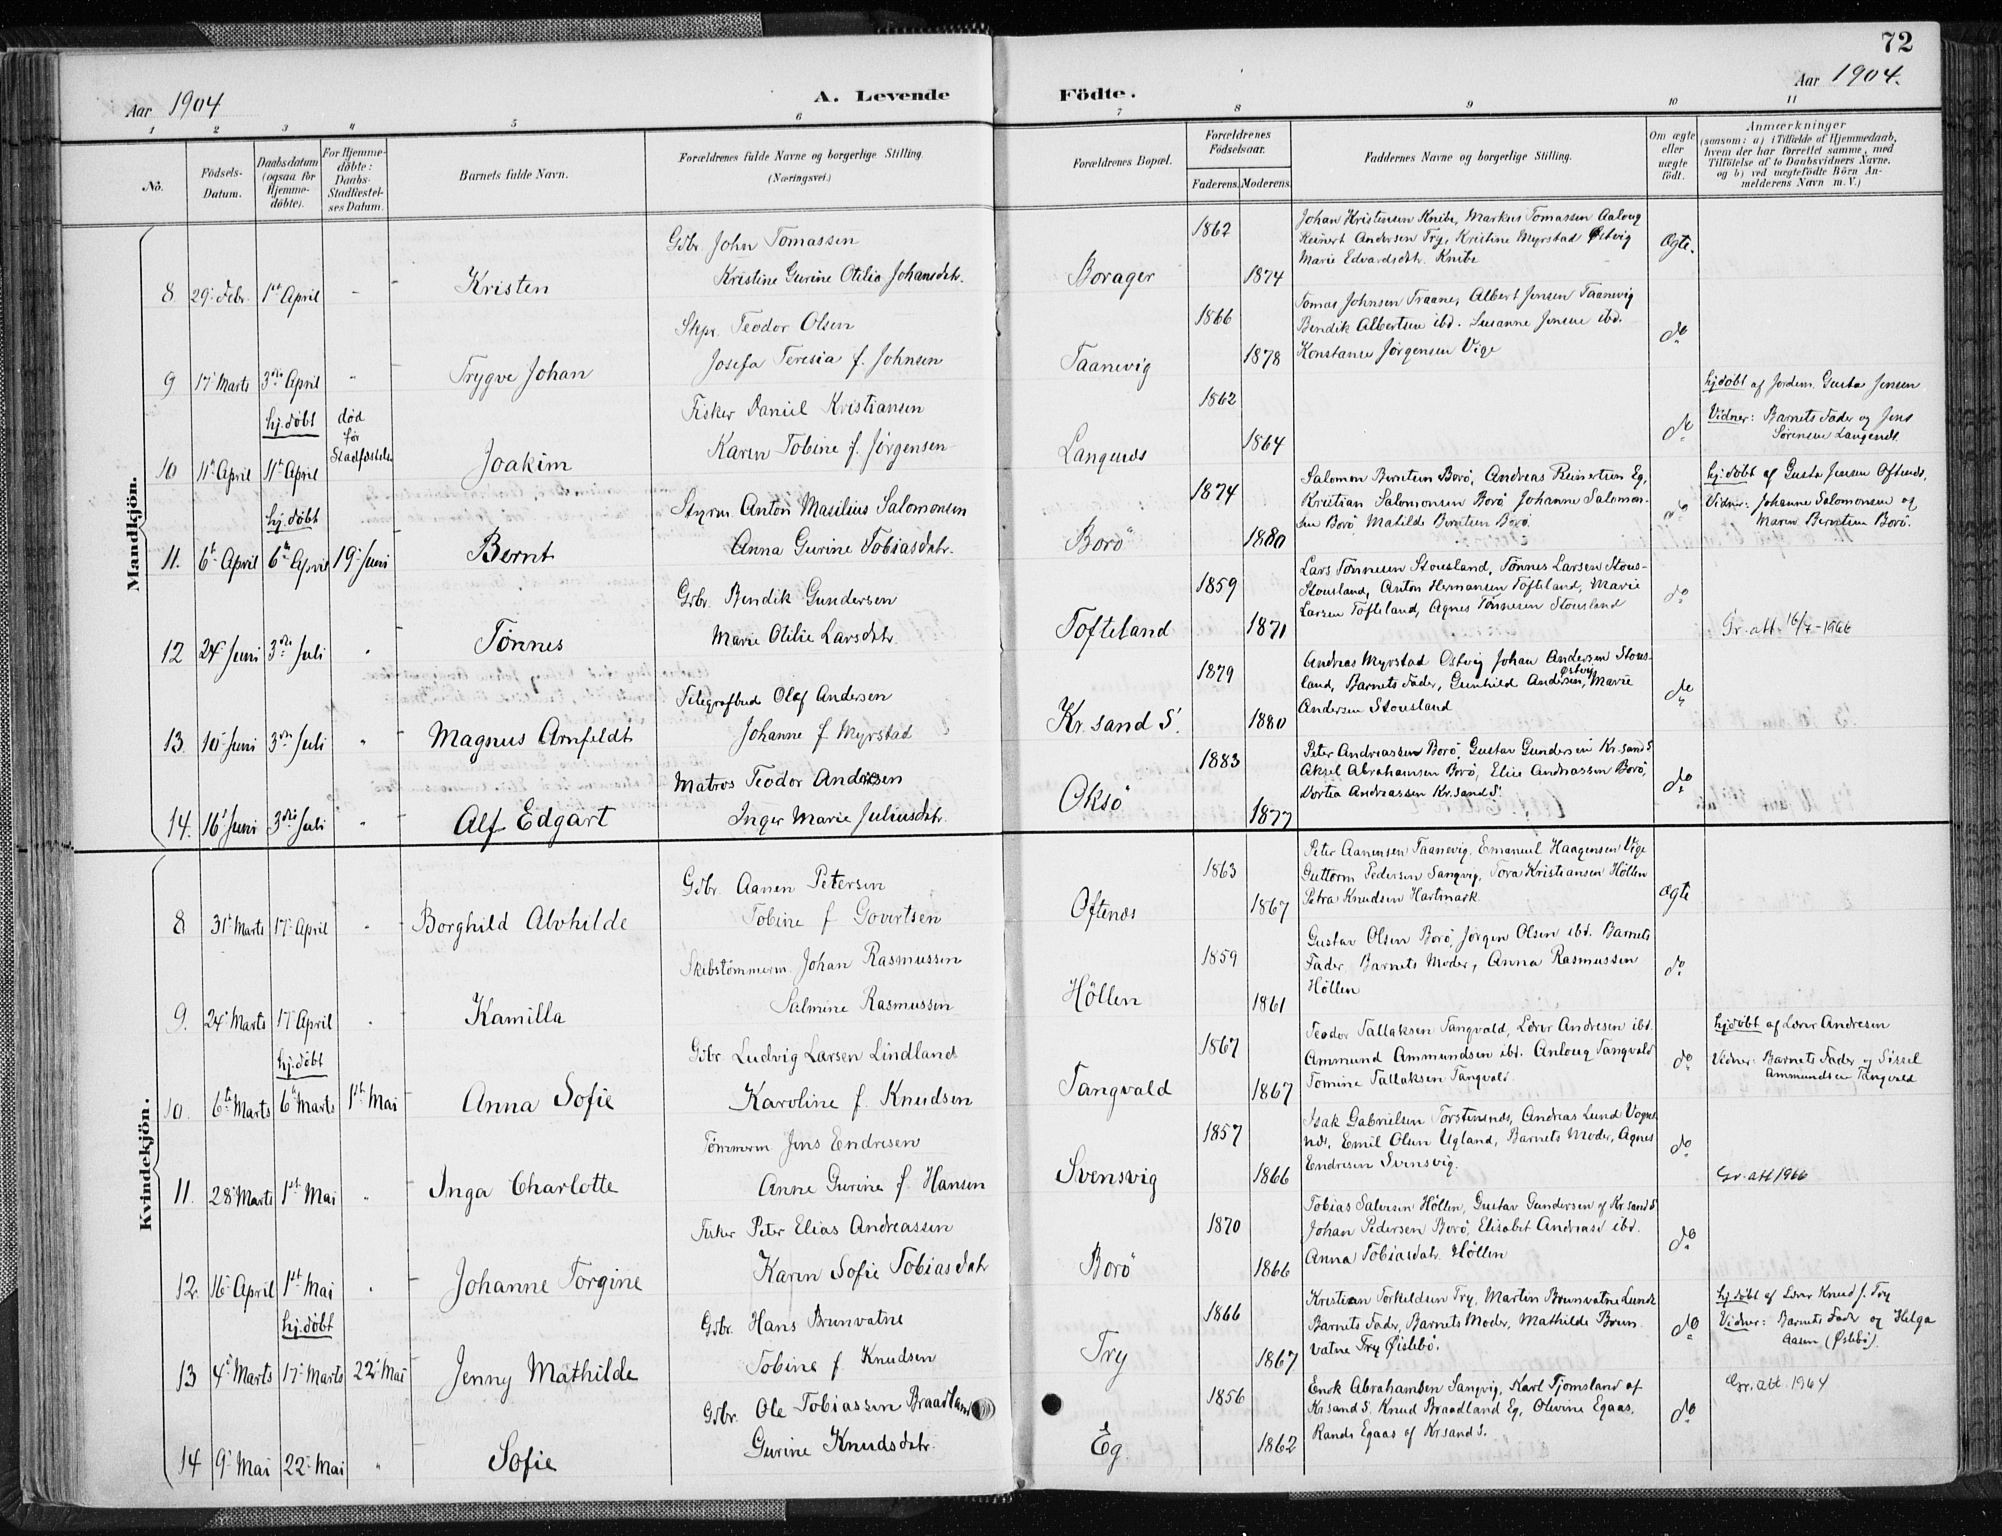 72
Aar 1904
A. Levende Födte.
Aar 1904.
1 2 3 4 5 6 7 8 9 10 11
No.
Födsels-Datum.
Daabsdatum (ogsaa for Hjemme-döbte).
For Hjemme-döbte: Daabs-Stadfæstel-ses Datum.
Barnets fulde Navn.
Forældrenes fulde Navne og borgerlige Stilling.
(Næringsvei.)
Forældrenes Bopæl.
Forældrenes Födselsaar.
Faderens. Moderens.
Faddernes Navne og borgerlige Stilling.
Om ægte eller uægte født.
Anmærkninger
(saasom: a) i Tilfælde af Hjemmedaab,
hvem der har forrettet samme, med
Tilföielse af to Daabsvidners Navne.
og b) ved uægtefödte Börn An-
melderens Navn m. V.)
Mandkjön.
8 29 Febr. 1st April - Kristen
Gdbr. John Tomassen
Kristine Gurine Otilia Johansdtr.
Borager 1862 1874
Johan Kristensen Knibe, Markus Tomassen Aaloug
Reinert Andersen Try, Kristine Myrstad Østvig
Marie Edvardsdtr. Knibe
Ægte.
9 17 Marts 3die April " Trygve Johan
Skpr. Teodor Olsen
Josefa Teresia f. Johnsen
Taanevig 1866 1878
Tomas Johnsen Traane, Albert Jensen Taanevig
Bendik Albertsen ibd. Susanne Jensen ibd.
Konstanse Jørgensen Vige
do
10 11 April hj. døbt 11 April død før Stadfæstelse Joakim
Fisker Daniel Kristiansen
Karen Tobine f. Jørgensen
Langenes 1862 1864
do
hj.døbt af Jordem. Gusta Jensen
Vidner: Barnets Fader og Jens
Sørensen Langenes.
11. 6te April hj. døbt 6te April 19 Juni Bernt
Styrm. Anton Masilius Salomonsen
Anna Gurine Tobiasdatr.
Borö 1874 1880
Salomon Berntsen Borö, Andreas Reinertsen Eg,
Kristian Salomonsen Borö Johanne Salomon-
sen Borö, Matilde Berntsen Borö.
do
hj.døbt af Gusta Jensen Oftenes,
Vidner: Johanne Salomonsen og
Maren Berntsen Borö.
12 24 Juni 3die Juli " Tønnes
Gdbr. Bendik Gundersen
Marie Otilie Larsdtr.
Tofteland 1859 1871
Lars Tønnesen Stousland, Tønnes Larsen Stous-
Stousland, Anton Hermansen Tofteland, Marie
Larsen Tofteland, Agnes Tønnesen Stousland
do
Gr. att. 16/7-1966
13. 10 Juni 3die Juli " Magnus Arnfeldt
Telegrafbud Olaf Andersen
Johanne f. Myrstad
Kr.sand S. 1879 1880
Andreas Myrstad Østvig Johan Andersen Stous-
land, Barnets Fader, Gunhild Andersen Østvig, Marie
Andersen Stousland
do
14. 16 Juni 3die Juli " Alf Edgart
Matros Teodor Andersen
Inger Marie Juliusdtr.
Oksö 1883 1877
Peter Andreassen Borö, Gustav Gundersen Kr.sand S.
Aksel Abrahamsen Borö, Elise Andreassen Borö,
Dortea Andreassen Kr.sand S.
do
Kvindekjön.
8 31 Marts 17 April - Borghild Alvhilde
Gdbr. Aanen Petersen
Tobine f. Govertsen
Oftenes 1863 1867
Peter Aanensen Taanevig, Emanuel Haagensen Vige
Guttorm Pedersen Sangvig, Tora Kristiansen Höllen
Petra Knudsen Hartmark
Ægte
9. 24 Marts 17 April - Kamilla
Skibstømmerm. Johan Rasmussen
Salmine Rasmussen
Höllen 1859 1861
Gustav Olsen Borö, Jørgen Olsen ibd. Barnets
Fader, Barnets Moder, Anna Rasmussen
Höllen
do
10. 6te Marts hj. døbt 6te Marts 1st Mai Anna Sofie
Gdbr. Ludvig Larsen Lindland
Karoline f. Knudsen
Tangvald 1867 1867
Teodor Tallaksen Tangvald, Lærer Andresen ibd.
Ammund Ammundsen ibd. Anloug Tangvald
Tomine Tallaksen Tangvald.
do
hj.døbt af Lærer Andresen
Vidner: Barnets Fader og Sissel
Ammundsen Tangvald
11. 28 Marts 1st Mai " Inga Charlotte
Tømmerm Jens Endresen
Anne Gurine f. Hansen
Svensvig 1857 1866
Isak Gabrielsen Torstenenes, Andreas Lund Vognes-
nes, Emil Olsen Ugland, Barnets Moder, Agnes
Endresen Svensvig.
do
Gr. att 1966
12. 16 April 1st Mai " Johanne Torgine
Fisker Peter Elias Andreassen
Karen Sofie Tobiasdatr
Borö 1870 1866
Tobias Salvesen Höllen, Gustav Gundersen af Kr.sand S.
Johan Pedersen Borö, Elisabet Andreas ibd.
Anna Tobiasdatr. Höllen
do
13 4 Marts hj. døbt 17 Marts 22 Mai Jenny Mathilde
Gdbr. Hans Brunvatne
Tobine f. Knudsen
Try 1866 1867
Kristian Torkeldsen Try, Martin Brunvatne Lunde
Barnets Fader, Barnets Moder, Mathilde Brun-
vatne Try Øislebö.
do
hj.døbt af Lærer Knud J. Try
Vidner: Barnets Fader og Helga
Aasen (Øslebö).
Gr. att. 1964
14 9 Mai 22 Mai " Sofie
Gdbr. Ole Tobiassen Braadland
Gurine Knudsdtr.
Eg 1856 1862
Enok Abrahamsen Sangvig, Karl Tjomsland af
Kr.sand S. Knud Braadland Eg, Olevine Egaas,
Randi Egaas af Kr.sand S.
do